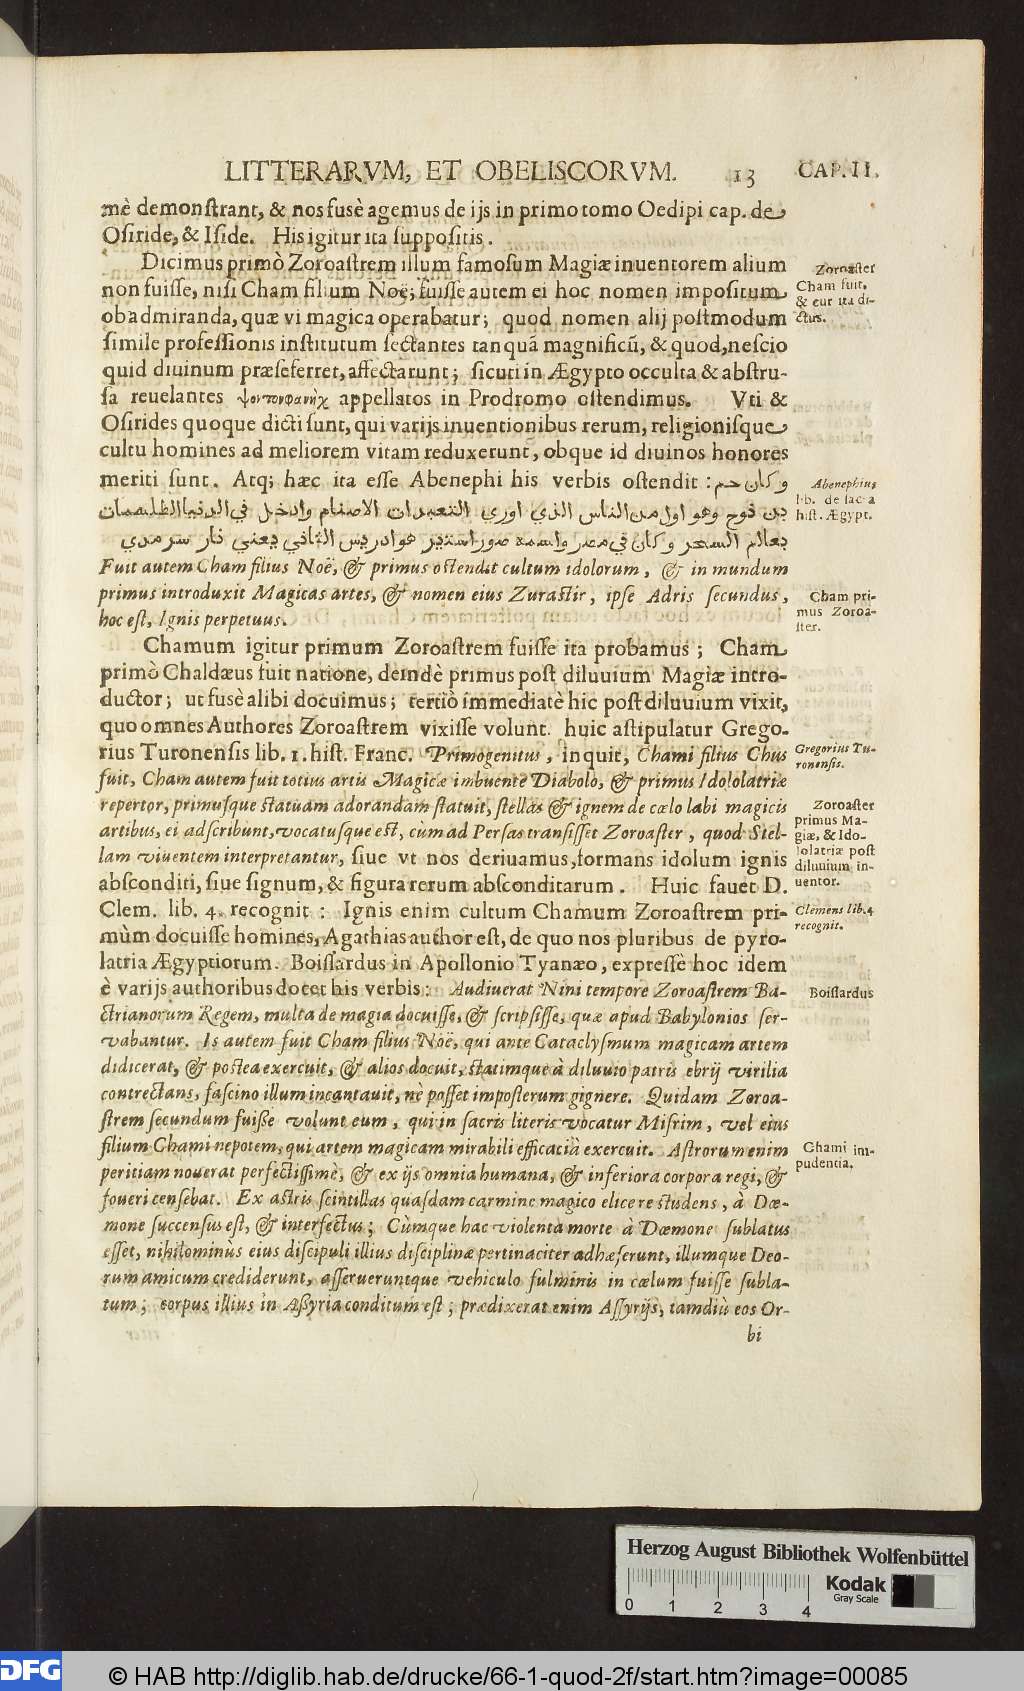 LITTERARVM, ET OBELISCORVM. 13 CAP. II.
mè demonſtrant, & nos fusè agemus de ijs in primo tomo Oedipi cap. de
Oſiride, & Iſide. His igitur ita ſuppoſitis.
Dicimus primò Zoroaſtrem illum famoſum Magiæ inuentorem alium
non fuiſſe, niſi Cham filium Noë; fuiſſe autem ei hoc nomen impoſitum
ob admiranda, quæ vi magica operabatur; quod nomen alij poſtmodum
ſimile profeſſionis inſtitutum ſectantes tanquã magnificũ, & quod, neſcio
quid diuinum præſeferret, affectarunt; ſicuti in Ægypto occulta & abſtru-
ſa reuelantes appellatos in Prodromo oſtendimus. Vti &
Oſirides quoque dicti ſunt, qui varijs inuentionibus rerum, religioniſque
cultu homines ad meliorem vitam reduxerunt, obque id diuinos honores
meriti ſunt. Atq; hæc ita eſſe Abenephi his verbis oſtendit : وكان حم
بن نوح وهو اول من الناس الذي اوري التعبدات الاصنام وادخل في الدنيا الطلسمات
بعالم السحر وكان في مصر واسمه صوراستير هو ادريس الثاني يعني نار سرمدي
Fuit autem Cham filius Noë, & primus oſtendit cultum idolorum, & in mundum
primus introduxit Magicas artes, & nomen eius Zuraſtir, ipſe Adris ſecundus,
hoc eſt, Ignis perpetuus.
Chamum igitur primum Zoroaſtrem fuiſſe ita probamus; Cham
primò Chaldæus fuit natione, deindè primus poſt diluuium Magiæ intro-
ductor; ut fusè alibi docuimus; tertiò immediatè hic poſt diluuium vixit,
quo omnes Authores Zoroaſtrem vixiſſe volunt. huic aſtipulatur Grego-
rius Turonenſis lib. 1. hiſt. Franc. Primogenitus, inquit, Chami filius Chus
fuit, Cham autem fuit totius artis Magicæ imbuente Diabolo, & primus Idololatriæ
repertor, primuſque ſtatuam adorandam ſtatuit, ſtellas & ignem de cælo labi magicis
artibus, ei adſcribunt, vocatuſque eſt, cùm ad Perſas tranſiſſet Zoroaſter, quod Stel-
lam viuentem interpretantur, ſiue vt nos deriuamus, formans idolum ignis
abſconditi, ſiue ſignum, & figura rerum abſconditarum. Huic fauet D.
Clem. lib. 4. recognit : Ignis enim cultum Chamum Zoroaſtrem pri-
mùm docuiſſe homines, Agathias author eſt, de quo nos pluribus de pyro-
latria Ægyptiorum. Boiſſardus in Apollonio Tyanæo, expreſſè hoc idem
è varijs authoribus docet his verbis : Audiuerat Nini tempore Zoroaſtrem Ba-
ctrianorum Regem, multa de magia docuiſſe, & ſcripſiſſe, quæ apud Babylonios ſer-
vabantur. Is autem fuit Cham filius Noë, qui ante Cataclyſmum magicam artem
didicerat, & poſtea exercuit, & alios docuit, ſtatimque à diluuio patris ebrij virilia
contrectans, faſcino illum incantauit, nè poſſet impoſterum gignere. Quidam Zoroa-
ſtrem ſecundum fuiſſe volunt eum, qui in ſacris literis vocatur Miſrim, vel eius
filium Chami nepotem, qui artem magicam mirabili efficacià exercuit. Aſtrorum enim
peritiam nouerat perfectiſſimè, & ex ijs omnia humana, & inferiora corpora regi, &
foueri cenſebat. Ex aſtris ſcintillas quaſdam carmine magico elicere ſtudens, à Dæ-
mone ſuccenſus eſt, & interfectus; Cùmque hac violenta morte à Dæmone ſublatus
eſſet, nihilominùs eius diſcipuli illius diſciplinæ pertinaciter adhæſerunt, illumque Deo-
rum amicum crediderunt, aſſerueruntque vehiculo fulminis in cælum fuiſſe ſubla-
tum; corpus illius in Aſſyria conditum eſt; prædixerat enim Aſſyrijs, tamdiù eos Or-
bi
Zoroaſter
Cham fuit,
& cur ita di-
ctus.
Abenephius
lib. de ſac a
hiſt. Ægypt.
Cham pri-
mus Zoroa-
ſter.
Gregorius Tu-
ronenſis.
Zoroaſter
primus Ma-
giæ, & Ido-
lolatriæ poſt
diluuium in-
uentor.
Clemens lib. 4
recognit.
Boiſſardus
Chami im-
pudentia.
Herzog August Bibliothek Wolfenbüttel
0 1 2 3 4
Kodak
Gray Scale
DFG
© HAB http://diglib.hab.de/drucke/66-1-quod-2f/start.htm?image=00085